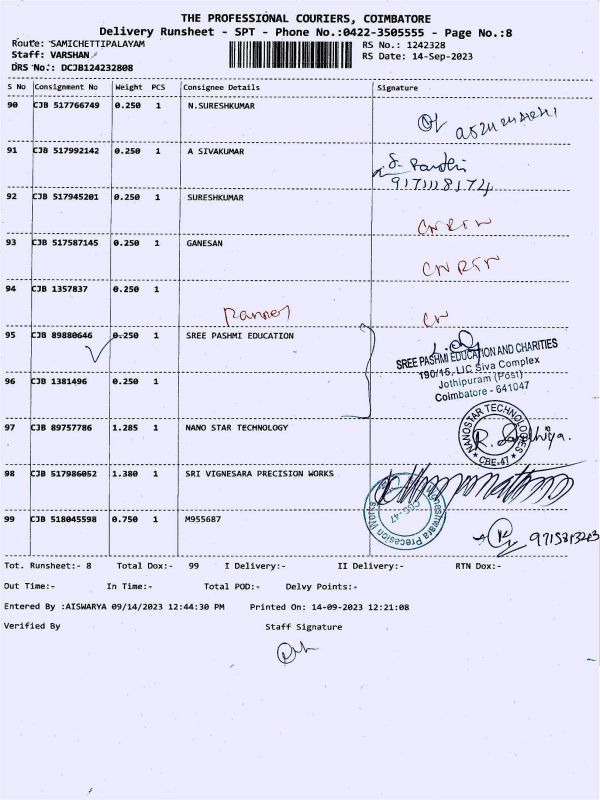 THE PROFESSIONAL COURIERS, COIMBATORE
Delivery Runsheet - SPT - Phone No.:0422-3505555 - Page No.:8
Route: SAMICHETTIPALAYAM RS No.: 1242328
Staff: VARSHAN RS Date: 14-Sep-2023
DRS No.: DCJB124232808
S No Consignment No Weight PCS Consignee Details Signature
90 CJB 517766749 0.250 1 N.SURESHKUMAR
91 CJB 517992142 0.250 1 A SIVAKUMAR
9171118174
92 CJB 517945201 0.250 1 SURESHKUMAR
CNRTN
93 CJB 517587145 0.250 1 GANESAN
CNRTN
94 CJB 1357837 0.250 1
CN
95 CJB 89880646 0.250 1 SREE PASHMI EDUCATION
SREE PASHMI EDUCATION AND CHARITIES
190/15, LIC Siva Complex
Jothipuram (Post)
Coimbatore - 641047
96 CJB 1381496 0.250 1
97 CJB 89757786 1.285 1 NANO STAR TECHNOLOGY
NANOSTAR TECHNOLOGIES
CBE-47
98 CJB 517986052 1.380 1 SRI VIGNESARA PRECISION WORKS
99 CJB 518045598 0.750 1 M955687
Tot. Runsheet:- 8 Total Dox:- 99 I Delivery:- II Delivery:- RTN Dox:-
Out Time:- In Time:- Total POD:- Delvy Points:-
Entered By :AISWARYA 09/14/2023 12:44:30 PM Printed On: 14-09-2023 12:21:08
Verified By Staff Signature